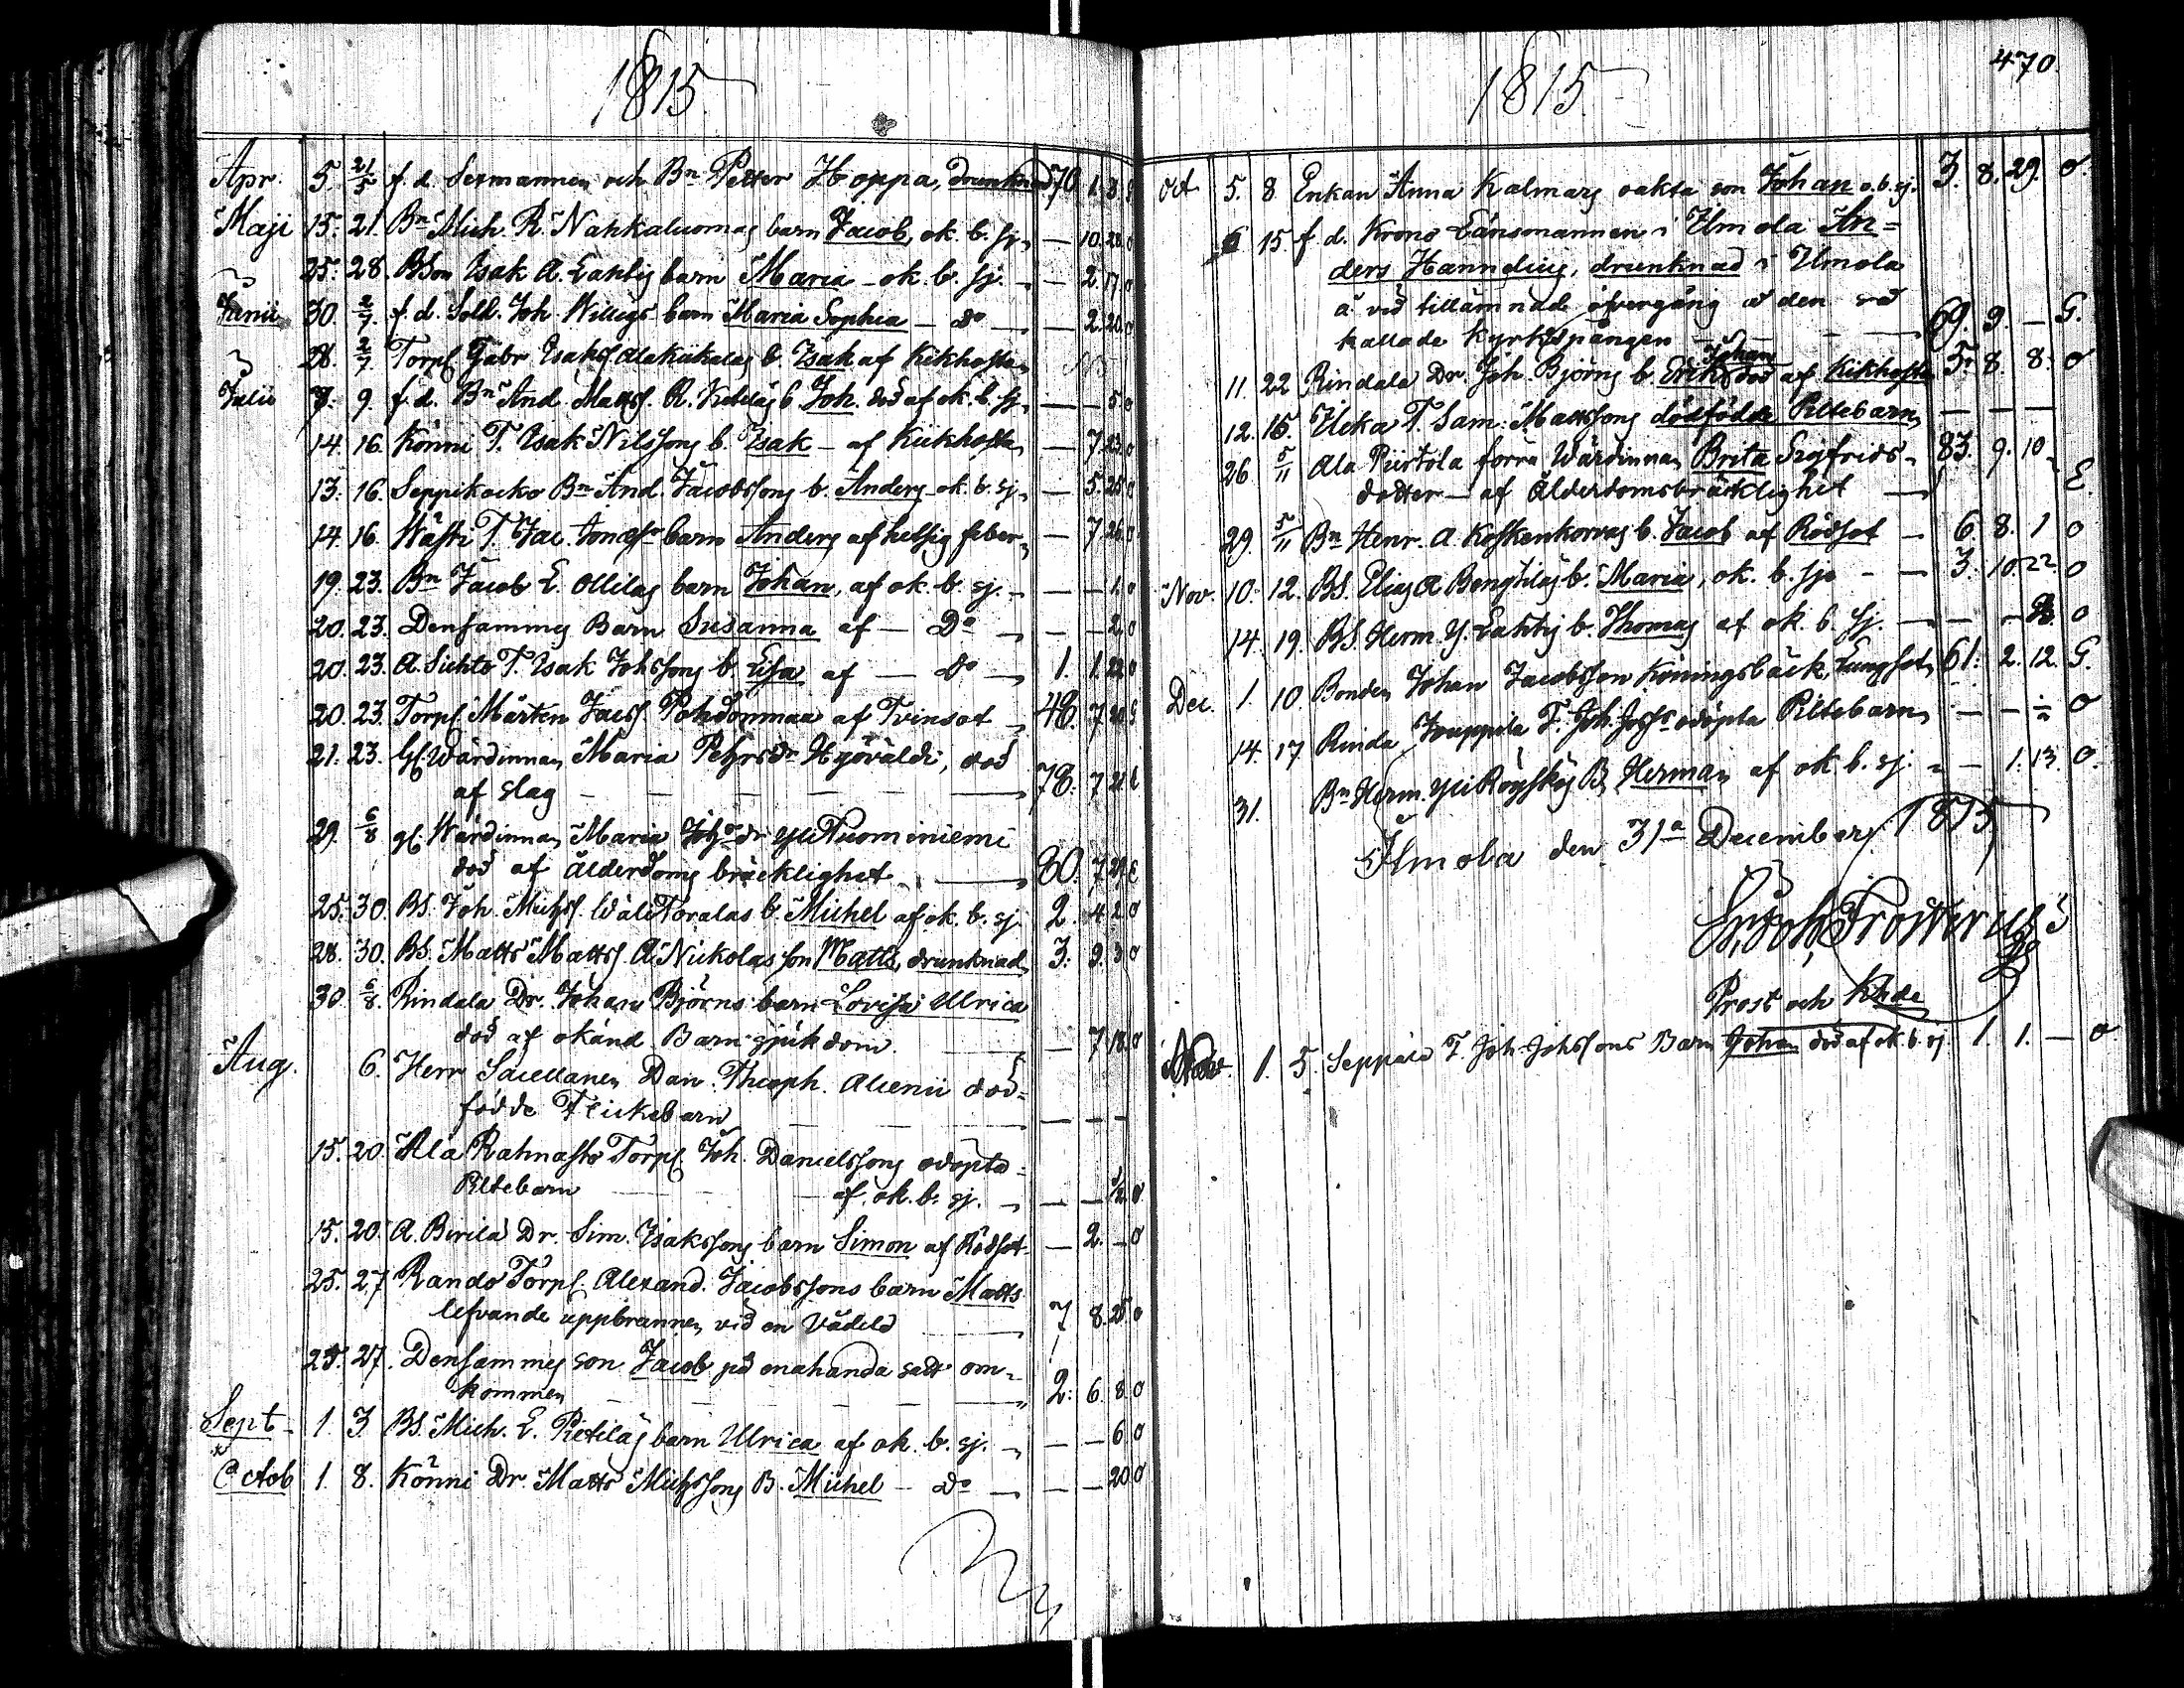 1815.
Apr. 5. 21/5 f. d. Sexmannen och Bn Petter Hoppa, drunknad 70 1. 3.
Maji 15. 21. Bn Mich. R. Nahkaluomas barn Jacob, ok. b. sj. — 10. 28. o
25. 28. BSon Isak A. Lahtis barn Maria — ok. b. sj. — 2. 17. o
Junii 30. 2/7. f. d. Sold. Joh. Willigs barn Maria Sophia — Do — 2. 20. o
28. 2/7 Torp. Gabr. Isaks. Alakäkelas b. Isak af Kikhosta
Julii 7. 9. f. d. Bn And. Matts. R. Ketelas b. Joh. död af ok. b. sj. — — 5 o
14. 16. Könni T. Isak Nilssons b. Isak — af Kikhosta — 7. 23. o
13. 16. Seppikocko Bn And. Jacobssons b. Anders ok. b. sj. — 5. 25 o
14. 16. Wästi T. Jac. barn Anders af hetsig feber — 7. 26. o
19. 23. Bn Jacob L. Ollilas barn Johan, af ok. b. sj. — — 1. o
20. 23. Densammes Barn Susanna af — Do — — 2. o
20. 23. A. Sichto T. Isak Johssons b. Lisa af — Do 1. 1. 22 o
20. 23. Torp. Mårten Jacs. Pohdonmaa af Tvinsot 48. 7. 20 G
21. 23. Gl. Wärdinnan Maria Pehrsdr Hyöväldi, död
af slag — — — — — 78. 7 21 E
29. 6/8 gl. Wärdinnan Maria Yli Tuominiemi
död af ålderdoms bräcklighet — 80. 7 29 E
25. 30. BS. Joh. Michs. Wäli Toralas b. Michel af ok. b. sj. 2. 4 2 o
28. 30. BS. Matts Matts. A. Nickolas son Matts, drunknad 3. 9. 3 o
30. 6/8. Rindala Dr. Johan Björns barn Lovisa Ulrica
död af okänd Barnsjukdom — 7. 18. o
Aug. 6. Herr Sacellanen Dan. Theoph. Alcenii död=
födde Flickebarn — — —
15. 20. Ala Rahnasto Torp. Joh. Danielssons odöpta
Piltebarn — af ok. b. sj. — — 1/2 o
15. 20. A. Berila Dr. Sim. Isakssons barn Simon af Rödsot — 2. — o
25. 27 Rando Torp. Alexand. Jacobssons barn Matts
lefvande uppbrannen vid en Vådeld 7 8. 25 o
25. 27. Densammes son Jacob på enahanda sätt om=
kommen — — — 2. 6. 8 o
Sept. 1. 3 BS. Mich. L. Pietiläs barn Ulrica af ok. b. sj. — — 6. o
Octob 1. 8. Könni Dr. Matts Michssons B. Michel — Do — — — 20 o
470.
1815
Oct 5. 8 Enkan Anna Kalmars oäkta son Johan o. b. sj. 3. 8. 29. o.
6 15 f. d. Krono Länsmannen i Ilmola An=
ders Hannelius, drunknad i Ilmola
å vid tillämnade öfvergång å den så
kallade Kyrkspången — 69. 9. — G.
11. 22 Rindala Dr. Joh. Björns b. Erik Johan död af Kikhosta 5. 8. 8. o
12. 15. Ilcka T. Sam. Mattssons dödfödda Piltebarn — — —
26 5/11 Ala Piirtola förra Wärdinnan Brita Sigfrids=
dotter — af Ålderdomsbräcklighet — 83. 9. 10 E
29. 5/11 Bn Henr. A. Koskenkorvas b. Jacob af Rödsot — 6. 8. 1 o
Nov. 10. 12. BS. Elias A Bengtiläs b. Maria, ok. b. sj. — 3. 10 22. o
14. 19. BS. Herm. Y. Lahtis b. Thomas af ok. b. sj. — — o
Dec. 1. 10 Bonden Johan Jacobsson Köningsbäck, Lungsot, 61. 2. 12. G.
14. 17 Rinda Jouppila T. Joh. odöpta Piltebarn — — o
31. Bn Herm. Yli Röyskös B. Herman af ok b. sj. — 1. 13. o.
Ilmola den 31a December 1815
Frosterus
Prost och Khde
Nov. 1. 5. Seppälä T. Joh. Johssons Barn Johan död af ok. b. sj. 1. 1. — o